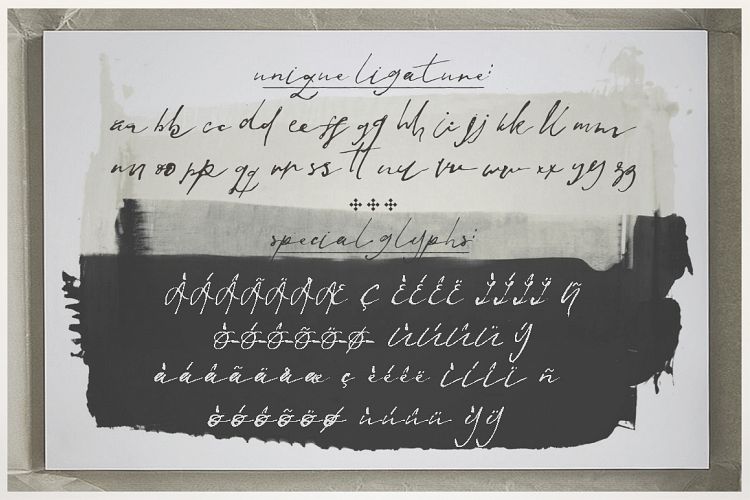 unique ligature:
aa bb cc dd ee ff gg hh ii jj kk ll mm
nn oo pp qq rr ss tt uu vv ww xx yy zz
special glyphs:
ÀÁÂÃÄÅÆ Ç ÈÉÊË ÌÍÎÏ Ñ
ÒÓÔÕÖØ ÙÚÛÜ Ý
àáâãäåæ ç èéêë ìíîï ñ
òóôõöø ùúûü ýÿ